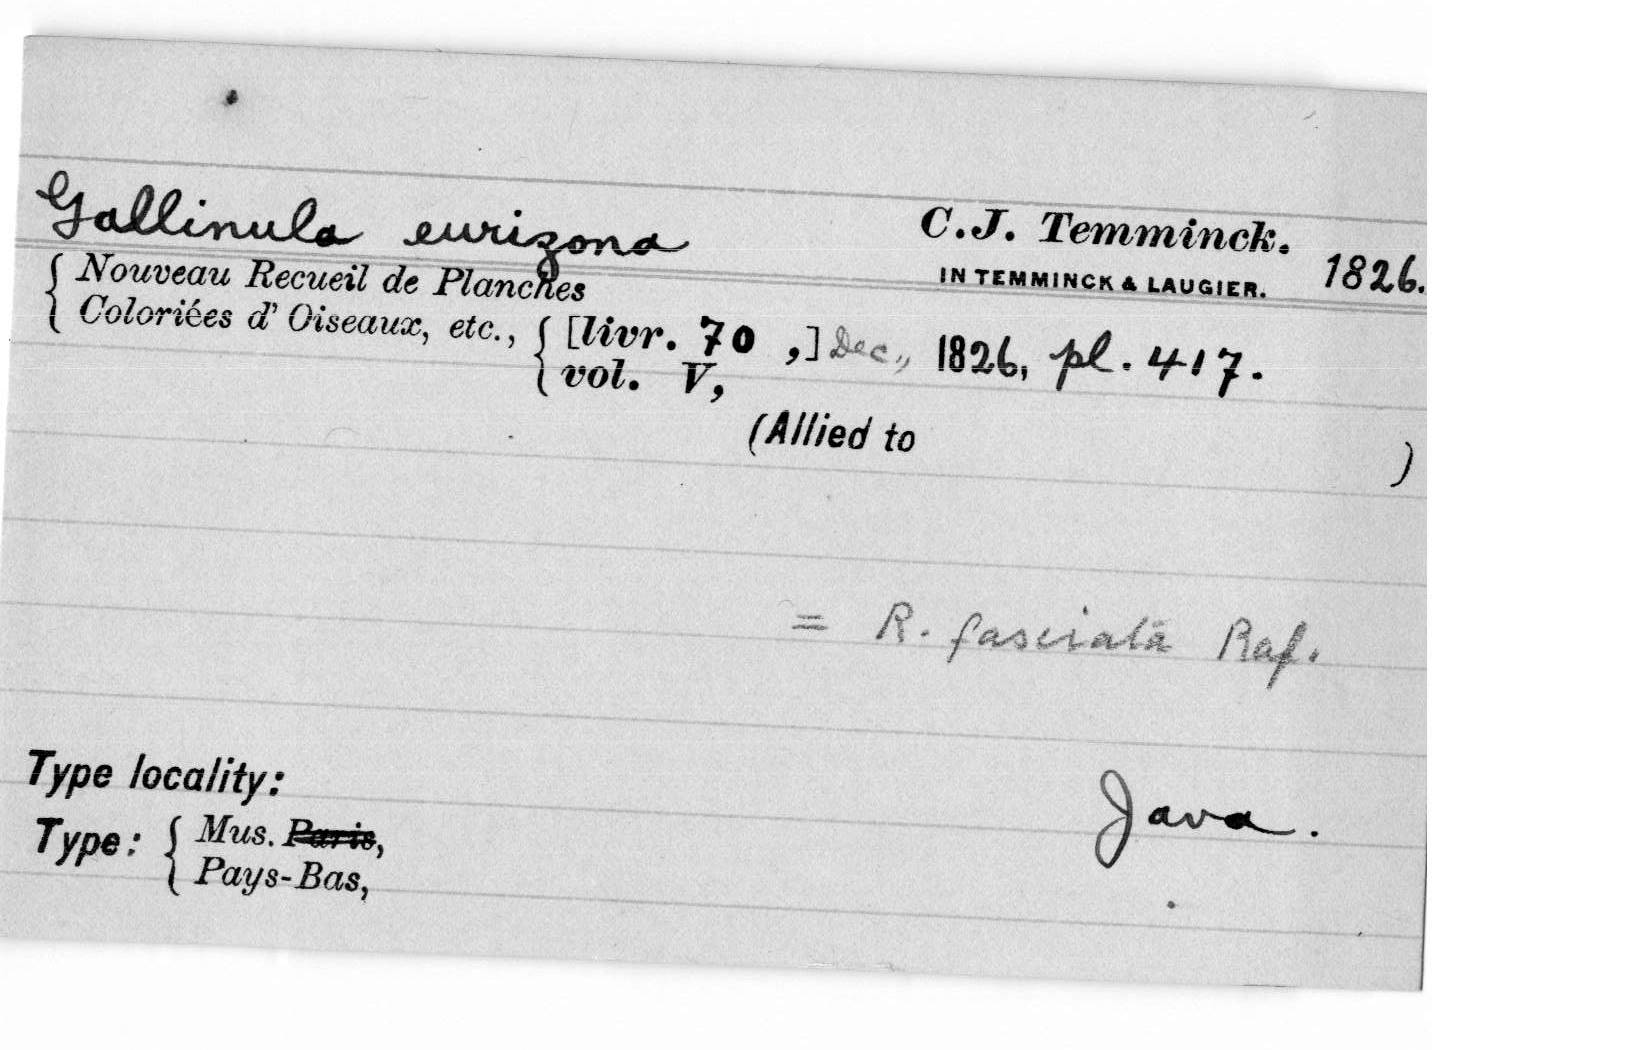 Gallinula eurizona C.J. Temminck.
IN TEMMINCK & LAUGIER. 1826.
{ Nouveau Recueil de Planches
Coloriées d' Oiseaux, etc., { [livr. 70 ,] Dec., 1826, pl. 417.
vol. V,
(Allied to )
= R. fasciata Raf.
Type locality: Java.
Type: { Mus. Paris,
Pays-Bas,